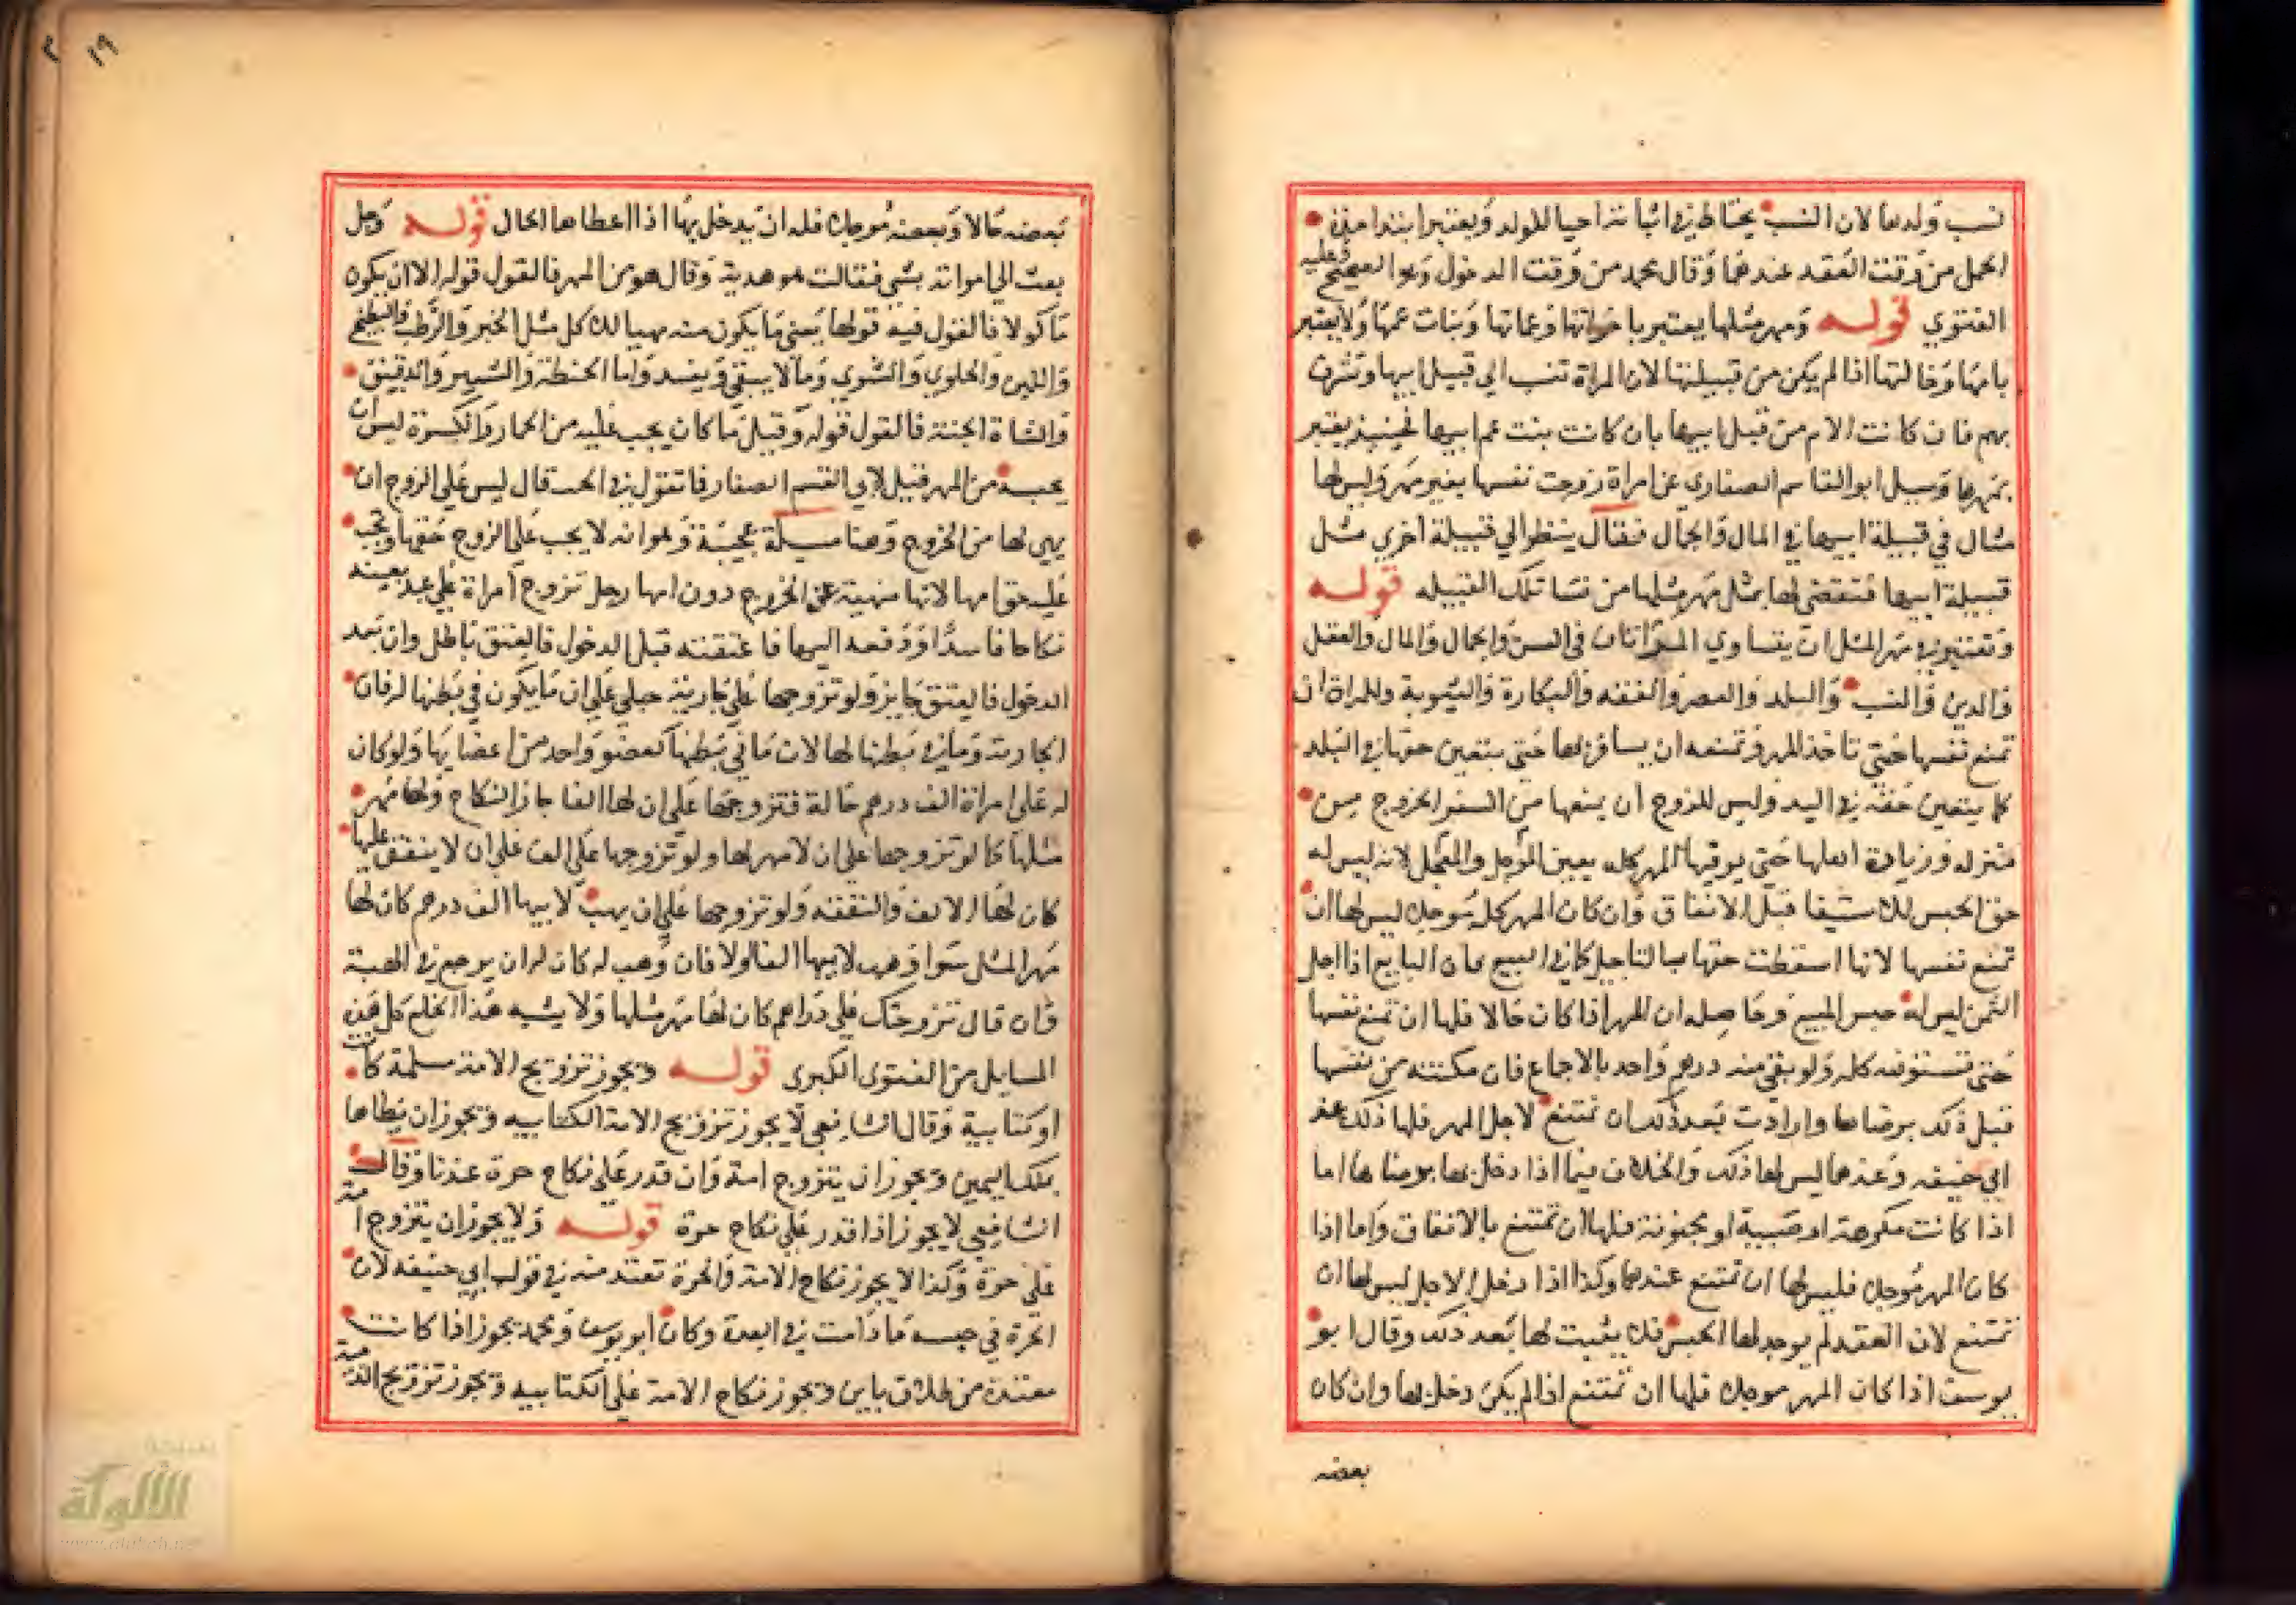 نسب ولدها لان النسب يحتاط في اثباته احيا للولد ويعتبر ابتدا مدة
الحمل من وقت العقد عندهما وقال محمد من وقت الدخول وهو الصحيح وعليه
الفتوي قوله ومهر مثلها يعتبر باخواتها وعماتها وبنات عمها ولا يعتبر
بامها وخالتها اذا لم يكن من قبيلتها لان المراة تنسب الي قبيل ابيها وتشرف
بهم فان كانت الام من قبيل ابيها بان كانت بنت عم ابيها فحينيذ يعتبر
بمهرها وسيل ابو القاسم الصفاري عن امراة زوجت نفسها بغير مهر وليس لها
مثال في قبيلة ابيها في المال والجمال فقال ينظر الي قبيلة اخري مثل
قبيلة ابيها فتقضي لها بمثل مهر مثلها من نسا تلك القبيله قوله
وتعتبر في مهر المثل ان يتساوي المراتان في السن والجمال والمال والعقل
والدين والنسب والبلد والعصر والعفة والبكارة والثيوبة وللمراة ان
تمنع نفسها حتي تاخذ المهر وتمنعه ان يسافر بها حتي يتعين حقها في البلد
كما يتعين حقه في اليد وليس للزوج ان يمنعها من السفر والخروج من
منزله وزيارة اهلها حتي يوفيها المهر كله يعني المؤجل والمعجل لانه ليس له
حق الحبس للاستيفا قبل الانفاق وان كان المهر كله موجلا ليس لها ان
تمنع نفسها لانها اسقطت حقها بالتاجيل كما في البيع فان البايع اذا اجل
الثمن ليس له حبس المبيع وحاصله ان المهر اذا كان حالا فلها ان تمنع نفسها
حتي تستوفيه كله ولو بقي منه درهم واحد بالاجماع فان مكنته من نفسها
قبل ذلك برضاها وارادت بعد ذلك ان تمتنع لاجل المهر فلها ذلك عند
ابي حنيفه وعندهما ليس لها ذلك والخلاف فيما اذا دخل بها برضاها اما
اذا كانت مكرهة او صبيبة او مجنونة فلها ان تمتنع بالاتفاق واما اذا
كان المهر موجلا فليس لها ان تمتنع عندهما وكذا اذا دخل الاجل ليس لها ان
تمتنع لان العقد لم يوجد لها الحبس فلا يثبت لها بعد ذلك وقال ابو
يوسف اذا كان المهر موجلا فلها ان تمتنع اذا لم يكن دخل بها وان كان
بعضه
١٩
بعضه حالا وبعضه موجلا فله ان يدخل بها اذا اعطاها الحال قوله وجل
بعث الي امراته بشي فقالت هو هدية وقال هو من المهر فالقول قوله الا ان يكون
ماكولا فالقول فيه قولها يعني ما يكون منه مهيا للاكل مثل الخبز والرطب والبطيخ
واللبن والحلوي والشوي وما لا يبقي ويفسد واما الحنطة والشعير والدقيق
والشاة الحية فالقول قوله وقيل ما كان يجب عليه من الخمار والكسوة ليس ان
يحبسه من المهر فقيل لابي القسم الصفار فما تقول في الخف قال ليس علي الزوج ان
يهيي لها من الخروج وهنا مسيلة عجيبة وهو انه لا يجب علي الزوج خفها ويجب
عليه خف امها لانها منهية عن الخروج دون امها رجل تزوج امراة علي عبد بعينه
نكاحا فاسدا ودفعه اليها فاعتقته قبل الدخول فالعتق باطل وان بعد
الدخول فالعتق جايز ولو تزوجها علي جارية حبلي علي ان ما يكون في بطنها له فان
الجارية وما في بطنها لها لان ما في بطنها كعضو واحد من اعضايها ولو كان
له علي امراة الف درهم حالة فتزوجها علي ان لها الفا جاز النكاح ولها مهر
مثلها كما لو تزوجها علي ان لا مهر لها ولو تزوجها علي الف علي ان لا ينفق عليها
كان لها الالف والنفقة ولو تزوجها علي ان يهب لابيها الف درهم كان لها
مهر المثل سوا وهب لابيها الفا او لا فان وهب له كان له ان يرجع في الهبة
فان قال تزوجتك علي دراهم كان لها مهر مثلها ولا يشبه هذا الخلع كل هذه
المسايل من الفتوي الكبري قوله ويجوز تزويج الامة مسلمة كانت
او كتابية وقال الشافعي لا يجوز تزويج الامة الكتابيه ويجوز ان يطاها
بملك اليمين ويجوز ان يتزوج امة وان قدر علي نكاح حرة عندنا وقال
الشافعي لا يجوز اذا قدر علي نكاح حرة قوله ولا يجوز ان يتزوج امة
علي حرة وكذا لا يجوز نكاح الامة والحرة تعتد منه في قول ابي حنيفه لان
الحرة في حبسه ما دامت في العدة وكان ابو يوسف ومحمد يجوز اذا كانت
معتدة من طلاق باين ويجوز نكاح الامة علي الكتابيه ويجوز تزويج الذمية
الألوكة
www.alukah.net